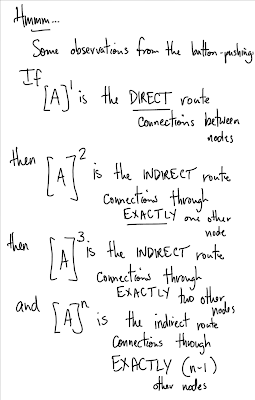 Hmmm...
Some observations from the button-pushing:
If
[A]¹ is the DIRECT route
connections between
nodes
then [A]² is the INDIRECT route
connections through
EXACTLY one other
node
then [A]³ is the INDIRECT route
connections through
EXACTLY two other
nodes
and [A]ⁿ is the indirect route
connections through
EXACTLY (n-1)
other nodes